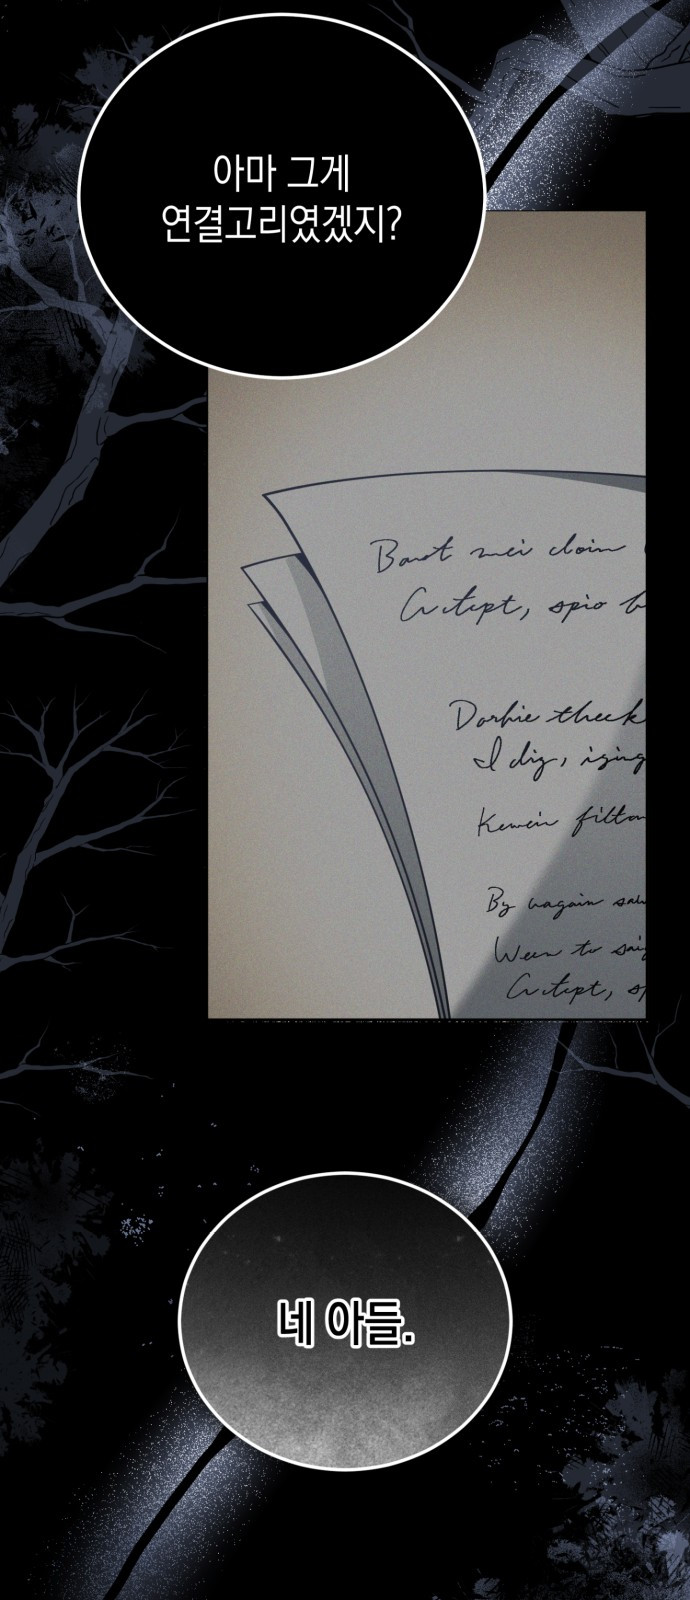 아마 그게
연결고리였겠지?
Baot mei cloin
Cictept, spio b
Dorhie theck
I dig, iging
Kewein filton
By vagain saw
Ween to saig
Cictept, sp
네 아들.